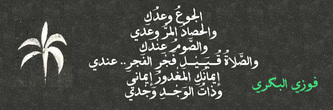 الجوعُ وعدُكِ
والحصادُ المرُّ وعدي
والصَّومُ عِندكِ
والصَّلاةُ قُبَيْلَ فَجْرِ الفَجرِ.. عندي
إيمانُكِ المغدورُ إيماني
وذاتُ الوَجْدِ وَجْدي
فوزي البكري